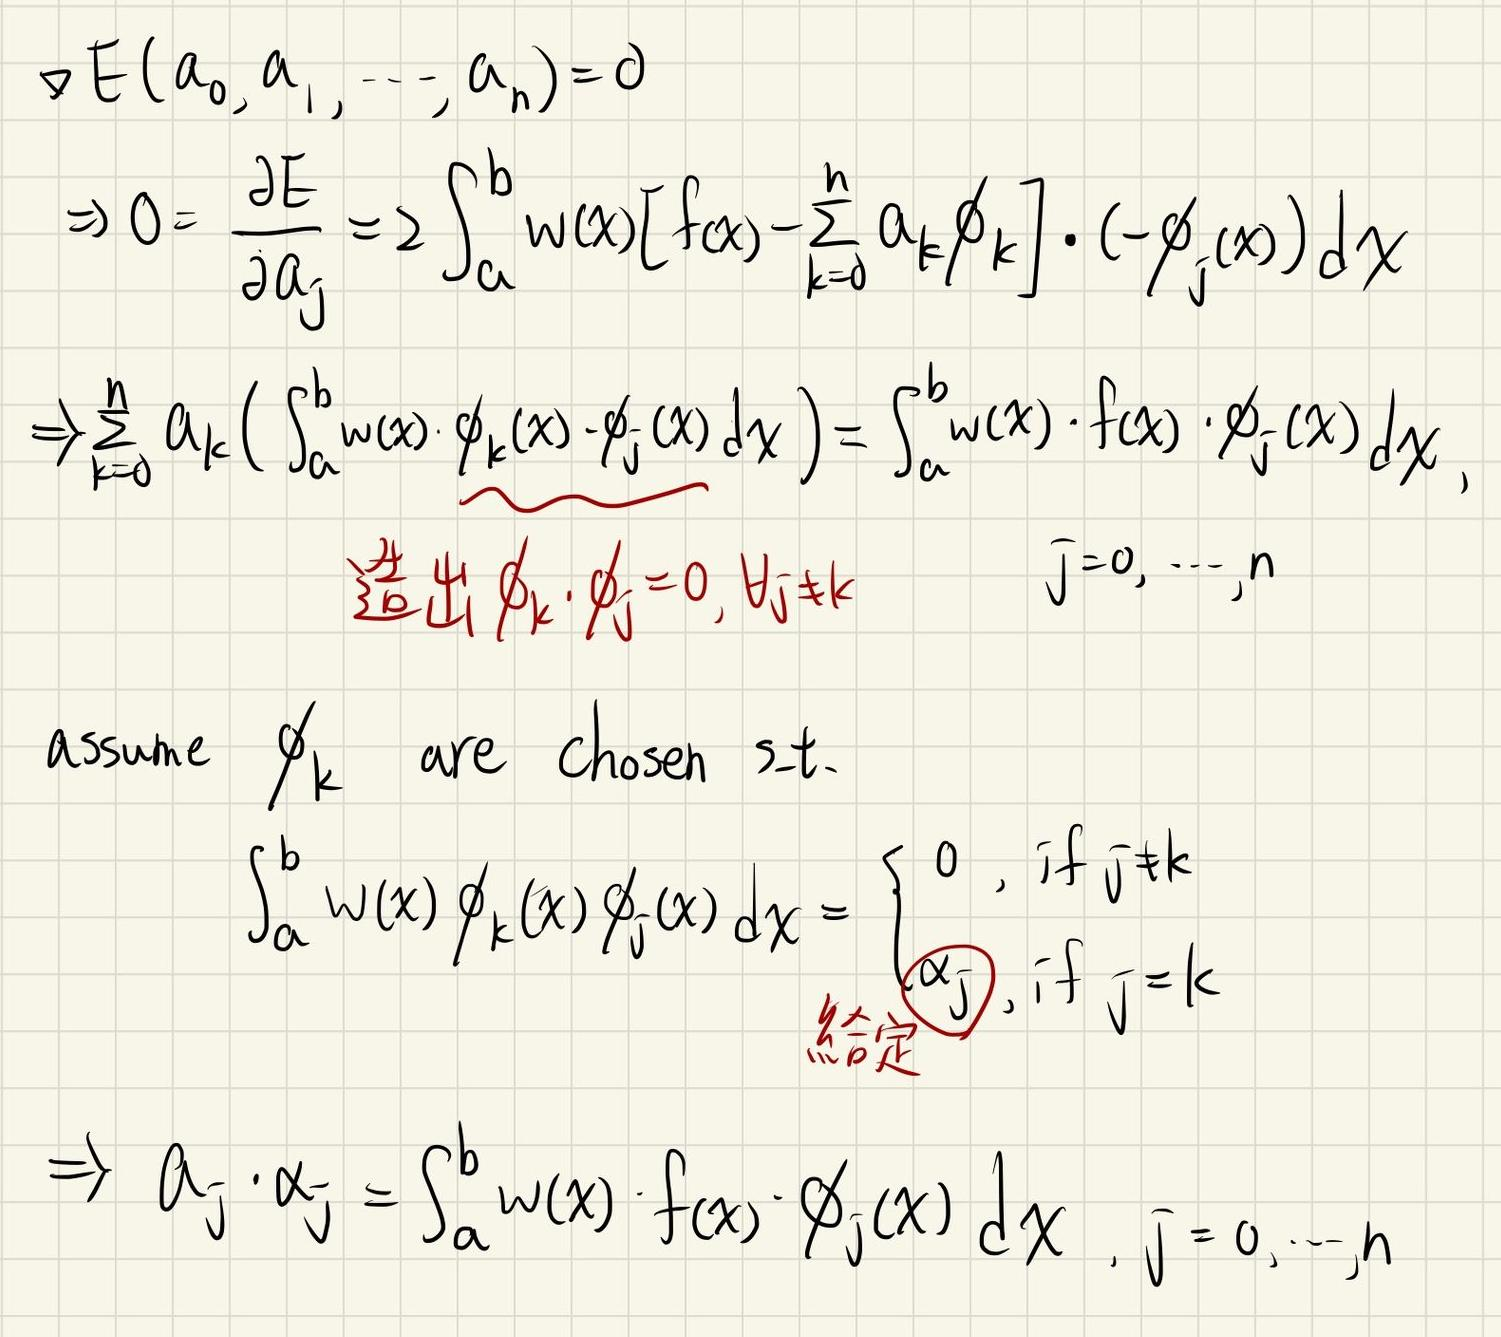 ∇E(a₀, a₁, ---, aₙ)=0
⇒ 0 = ∂E/∂aⱼ = 2 ∫ₐᵇ w(x)[f(x) - ∑ₖ₌₀ⁿ aₖϕₖ]·(-ϕⱼ(x))dx
⇒ ∑ₖ₌₀ⁿ aₖ(∫ₐᵇ w(x)·ϕₖ(x)·ϕⱼ(x)dx) = ∫ₐᵇ w(x)·f(x)·ϕⱼ(x)dx,
j=0, ---, n
造出 ϕₖ·ϕⱼ=0, ∀j≠k
assume ϕₖ are chosen s.t.
∫ₐᵇ w(x)ϕₖ(x)ϕⱼ(x)dx = { 0, if j≠k
αⱼ, if j=k
給定
⇒ aⱼ·αⱼ = ∫ₐᵇ w(x)·f(x)·ϕⱼ(x)dx, j=0, ---, n